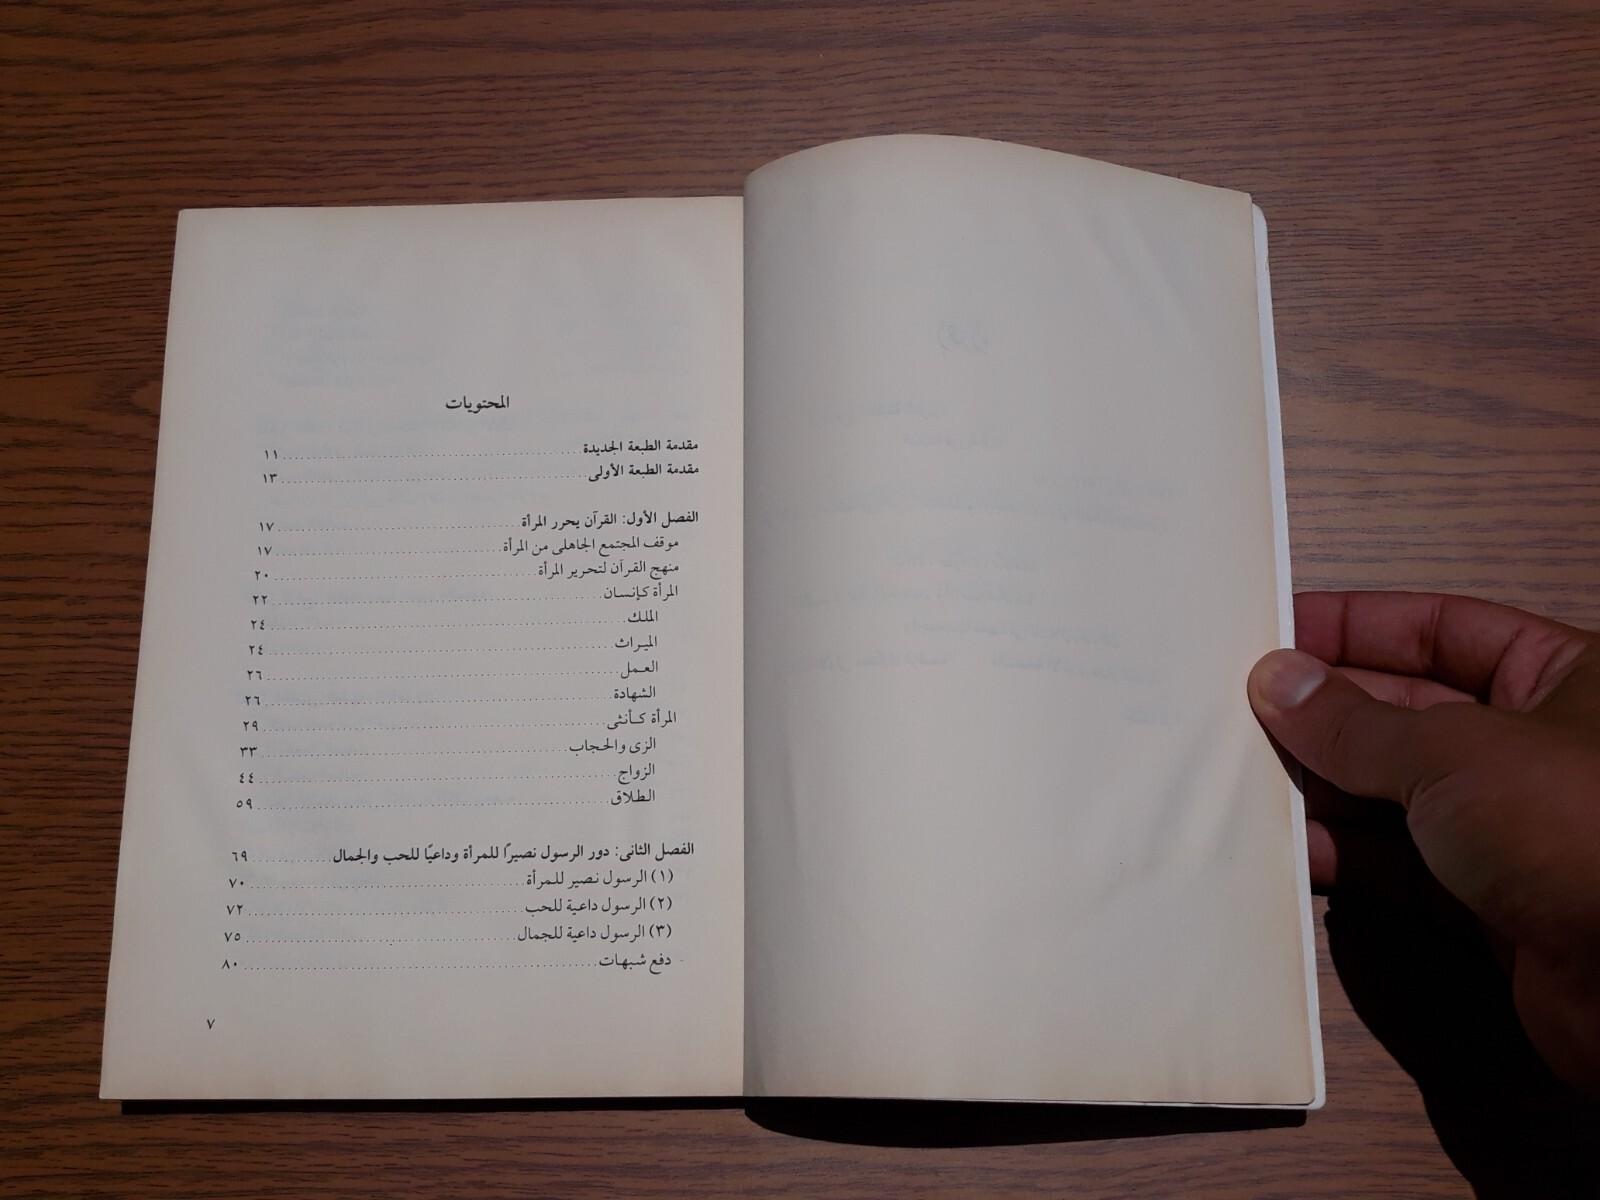 المحتويات
مقدمة الطبعة الجديدة ................ ١١
مقدمة الطبعة الأولى ................ ١٣
الفصل الأول: القرآن يحرر المرأة ................ ١٧
موقف المجتمع الجاهلى من المرأة ................ ١٧
منهج القرآن لتحرير المرأة ................ ٢٠
المرأة كإنسان ................ ٢٢
الملك ................ ٢٤
الميراث ................ ٢٤
العمل ................ ٢٦
الشهادة ................ ٢٦
المرأة كأنثى ................ ٢٩
الزى والحجاب ................ ٣٣
الزواج ................ ٤٤
الطلاق ................ ٥٩
الفصل الثانى: دور الرسول نصيرًا للمرأة وداعيًا للحب والجمال ................ ٦٩
(١) الرسول نصير للمرأة ................ ٧٠
(٢) الرسول داعية للحب ................ ٧٢
(٣) الرسول داعية للجمال ................ ٧٥
دفع شبهات ................ ٨٠
٧